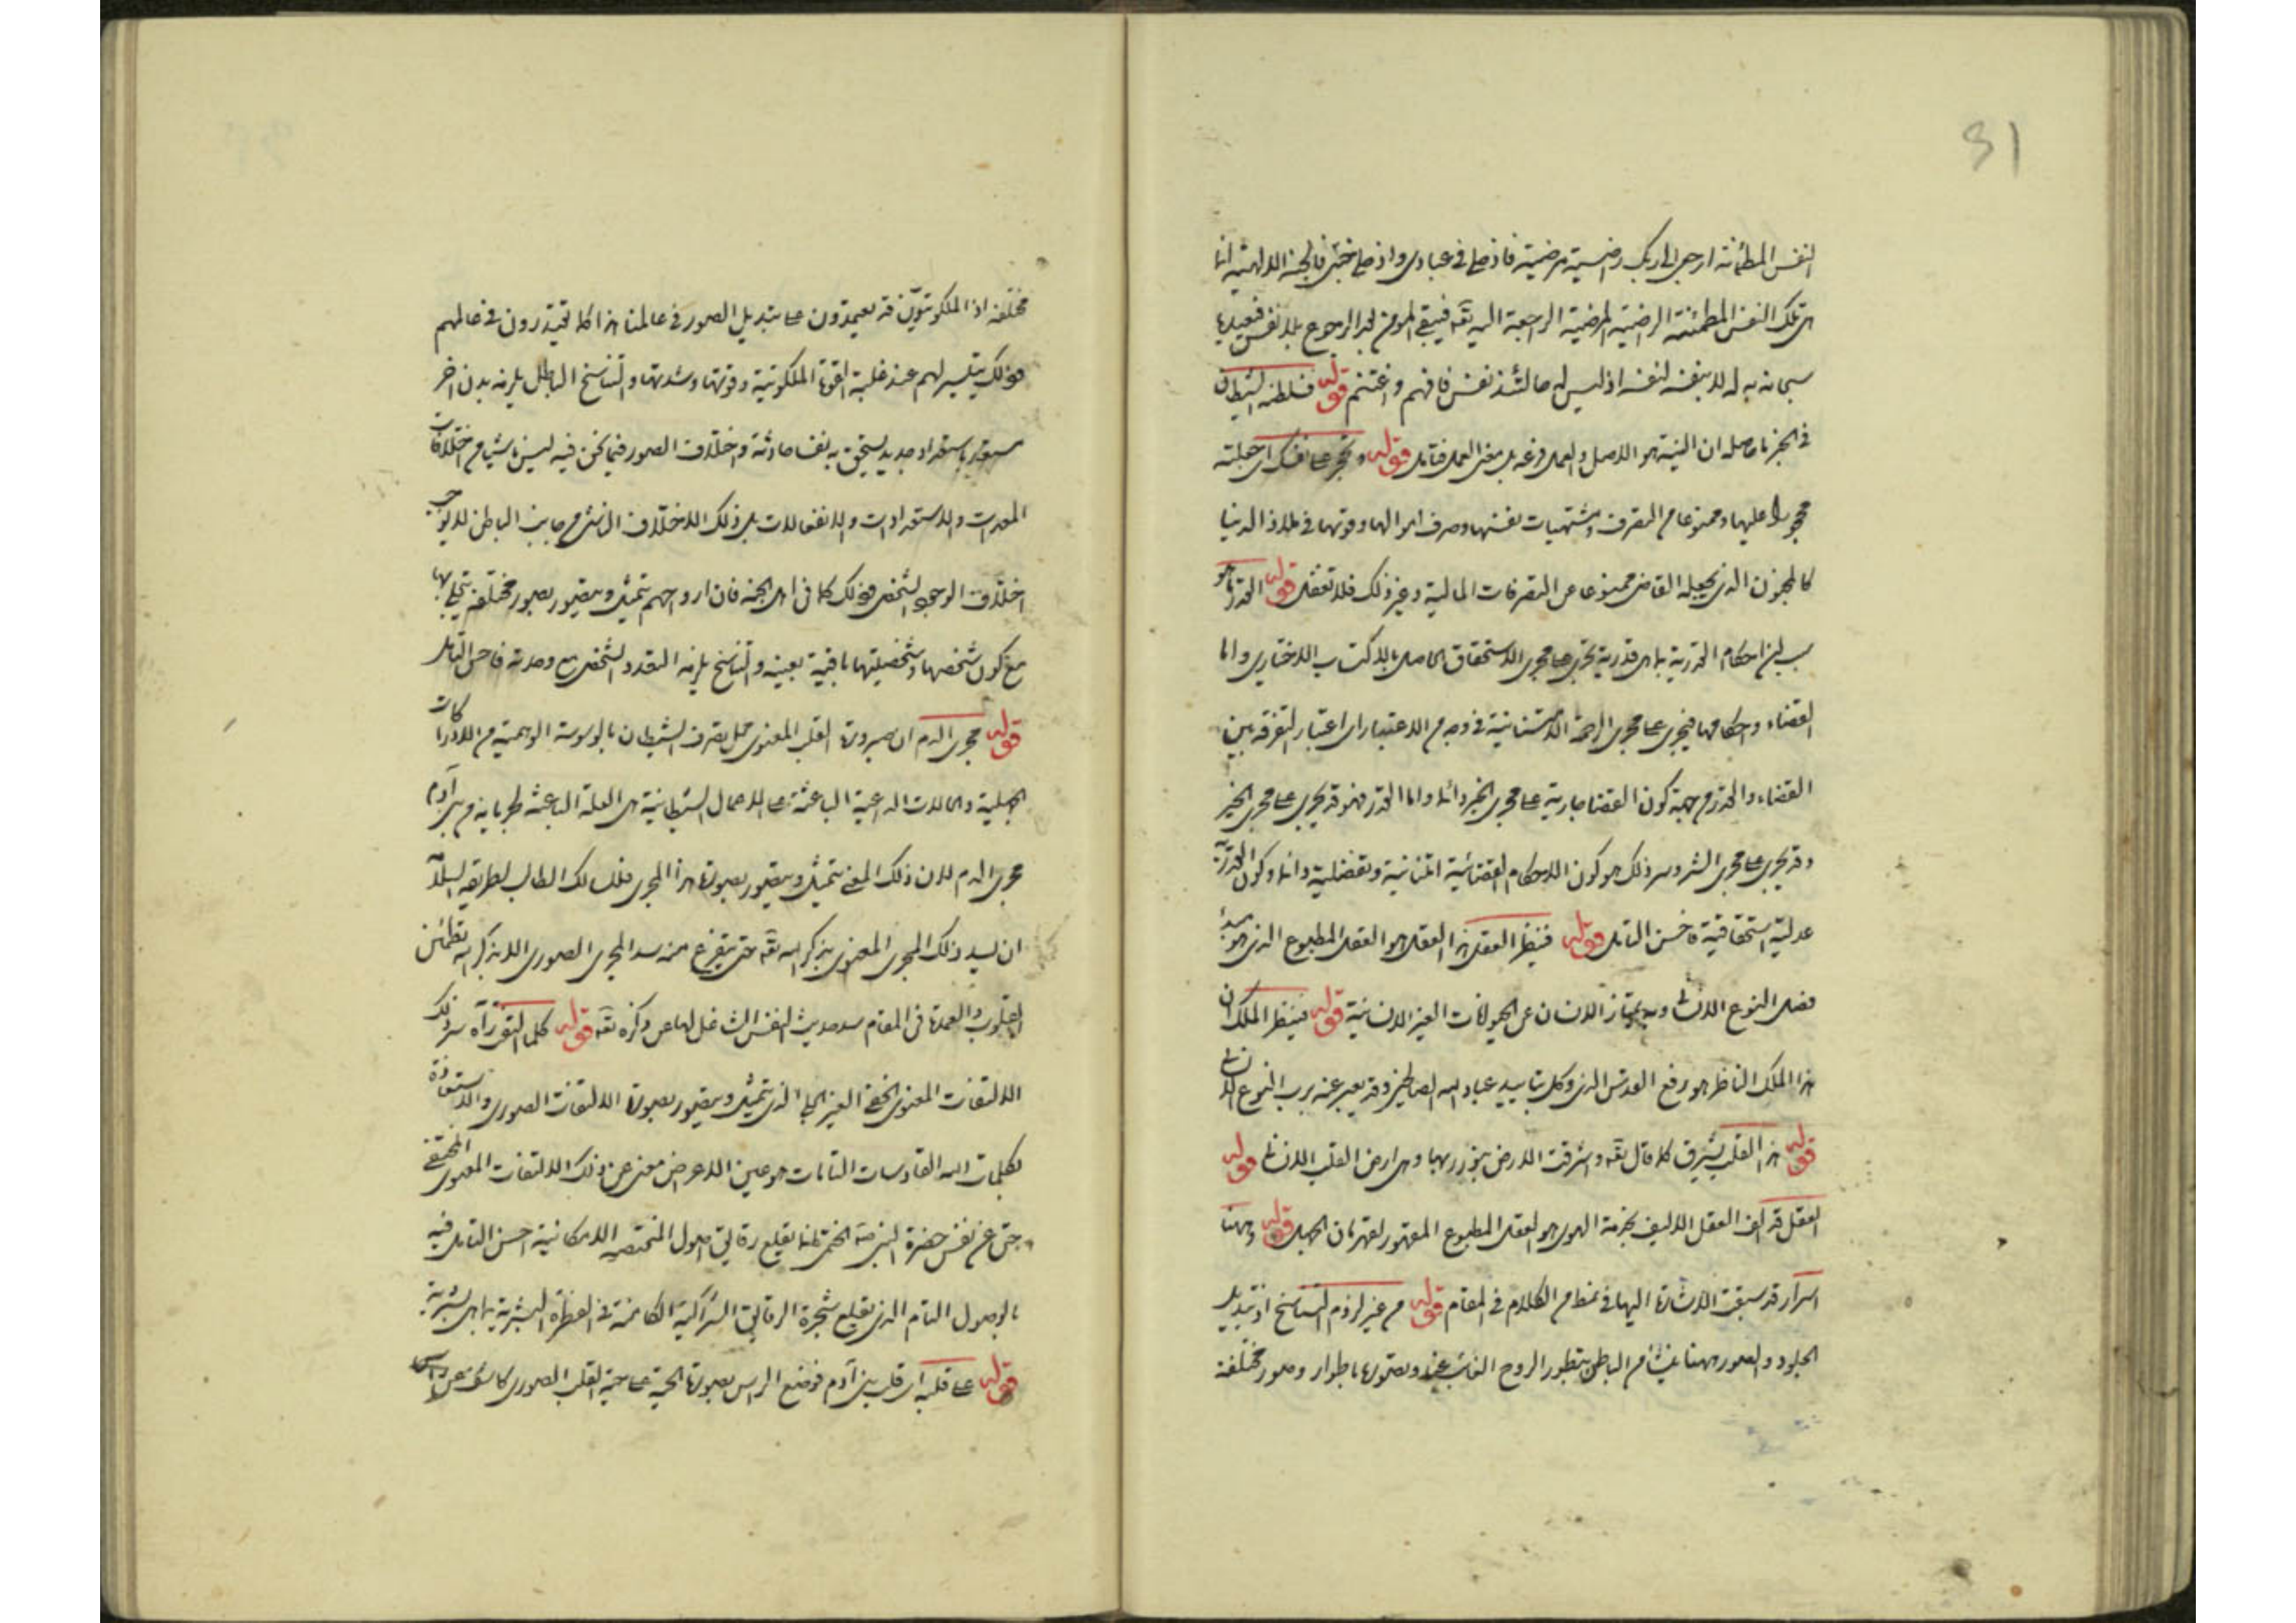 31
النفس المطمئنة ارجعى الى ربك راضية مرضية فادخلى فى عبادى وادخلى جنتى فالجنة الالهية انما
هى تلك النفس المطمئنة الراضية المرضية الراجعة اليه تقه فيبقى المؤمن بعد الرجوع بلا نفس فيعيدها
سبحانه به له لا بنفسه لنفسه اذ ليس له حالتئذ نفس فافهم واغتنم قوله فسلطنه الشيطان
فى الخبر ما حاصله ان النية هو الاصل والعمل فرعه بل مغز العمل فتامل قوله وتحجر على نفسك اى جعلته
محجورا عليها وممنوعا من التصرف ومشتهيات نفسها وصرف اموالها وقوتها فى ملاذ الدنيا
كالمجنون الذى يجعله القاضى ممنوعا عن التصرفات المالية وغير ذلك فلا تغفل قوله القدر ما هو
احكام القدرية بما هى قدرية تجرى على مجرى الاستحقاق الحاصل بالاكتساب الاختيارى واما
القضاء واحكامها فيجرى على مجرى الرحمة الامتنانية فى وجه من الاعتبار اى اعتبار التفرقة بين
القضاء والقدر من جهة كون القضا جارية على مجرى الخير دائما واما القدر فهو قد يجرى على مجرى الخير
وقد يجرى على مجرى الشر وسر ذلك هو كون الاحكام القضائية امتنانية وتفضلية دائما وكون القدرية
عدلية استحقاقية فاحسن التامل قوله فينظر العقل هذا العقل هو العقل المطبوع الذى هو مبدأ
فصل النوع الانسانى وبه يمتاز الانسان عن الحيوانات الغير الانسانية قوله فينظر الملك ان
هذا الملك الناظر هو روح القدس الذى وكل بتاييد عباد الله الصالحين وقد يعبر عنه برب النوع الانسانى
قوله هذا القلب يشرق كما قال تقه واشرقت الارض بنور ربها وهى ارض القلب الانسانى قوله
العقل قد الف العقل الاليف بخدمة الهوى هو العقل المطبوع المقهور لقهرمان الجهل قوله وههنا
اسرار قد سبقت الاشارة اليها فى نمط من الكلام فى المقام قوله من غير لزوم التناسخ اذ تبديل
الجلود والصور ههنا ينشأ من الباطن بتطور الروح وتصوره باطوار وصور مختلفة
مختلفة اذ الملكوتيون قد يعيدون على تبديل الصور فى عالمنا هذا كما يقتدرون فى عالمهم
فذلك يتيسر لهم عند غلبة القوة الملكوتية وقوتها وشدتها والتناسخ الباطل يلزمه بدن اخر
مستعد باستعداد جديد يستحق به نفسا حادثة واختلاف الصور فيما نحن فيه ليس ناشيا من اختلافات
المعدات والاستعدادات والانفعالات بل ذلك الاختلاف الناشى من جانب الباطن لا يوجب
اختلاف الوجود الشخصى فذلك كما فى اهل الجنة فان ارواحهم يتمثل ويتصور بصور مختلفة يتجلى بها
مع كون شخصها وشخصيتها باقية بعينه والتناسخ يلزمه التعدد الشخصى مع وحدته فاحسن التامل
قوله مجرى الدم ان صيرورة القلب المعنوى محل تصرف الشيطان بالوسوسة الوهمية من الادراكات
الجهلية والحالات الداعية الباعثة على الاعمال الشيطانية هى العلة الباعثة لجريانه من بنى آدم
مجرى الدم لان ذلك المعنى يتمثل ويتصور بصورة هذا المجرى فللسالك الطالب لطريقه السلامة
ان يسد ذلك المجرى المعنوى بذكر الله تقه حتى يتفرع منه سد المجرى الصورى الا بذكر الله تطمئن
القلوب والعمدة فى المقام سد حديث النفس الشاغل لها عن ذكره تقه قوله كلما التقوراه سر ذلك
الالتفات المعنوى الخفى الغير الجلى الذى يتمثل ويتصور بصورة الالتفات الصورى والاستعاذة
بكلمات الله القادسات التامات هو عين الاعراض معنى عن ذلك الالتفات المعنوى المختفى
حتى عن نفس حضرة يقلع رقايق اصول الامكانية احسن التامل فيه
بالوصول التام الذى يقلع شجرة الرقايق الشراكية الكامنة فى الفطرة البشرية بما هى بشرية
قوله على قلبه اى قلب بنى آدم فوضع الراس بصورة الحية على حبة القلب الصورى كاشف عن